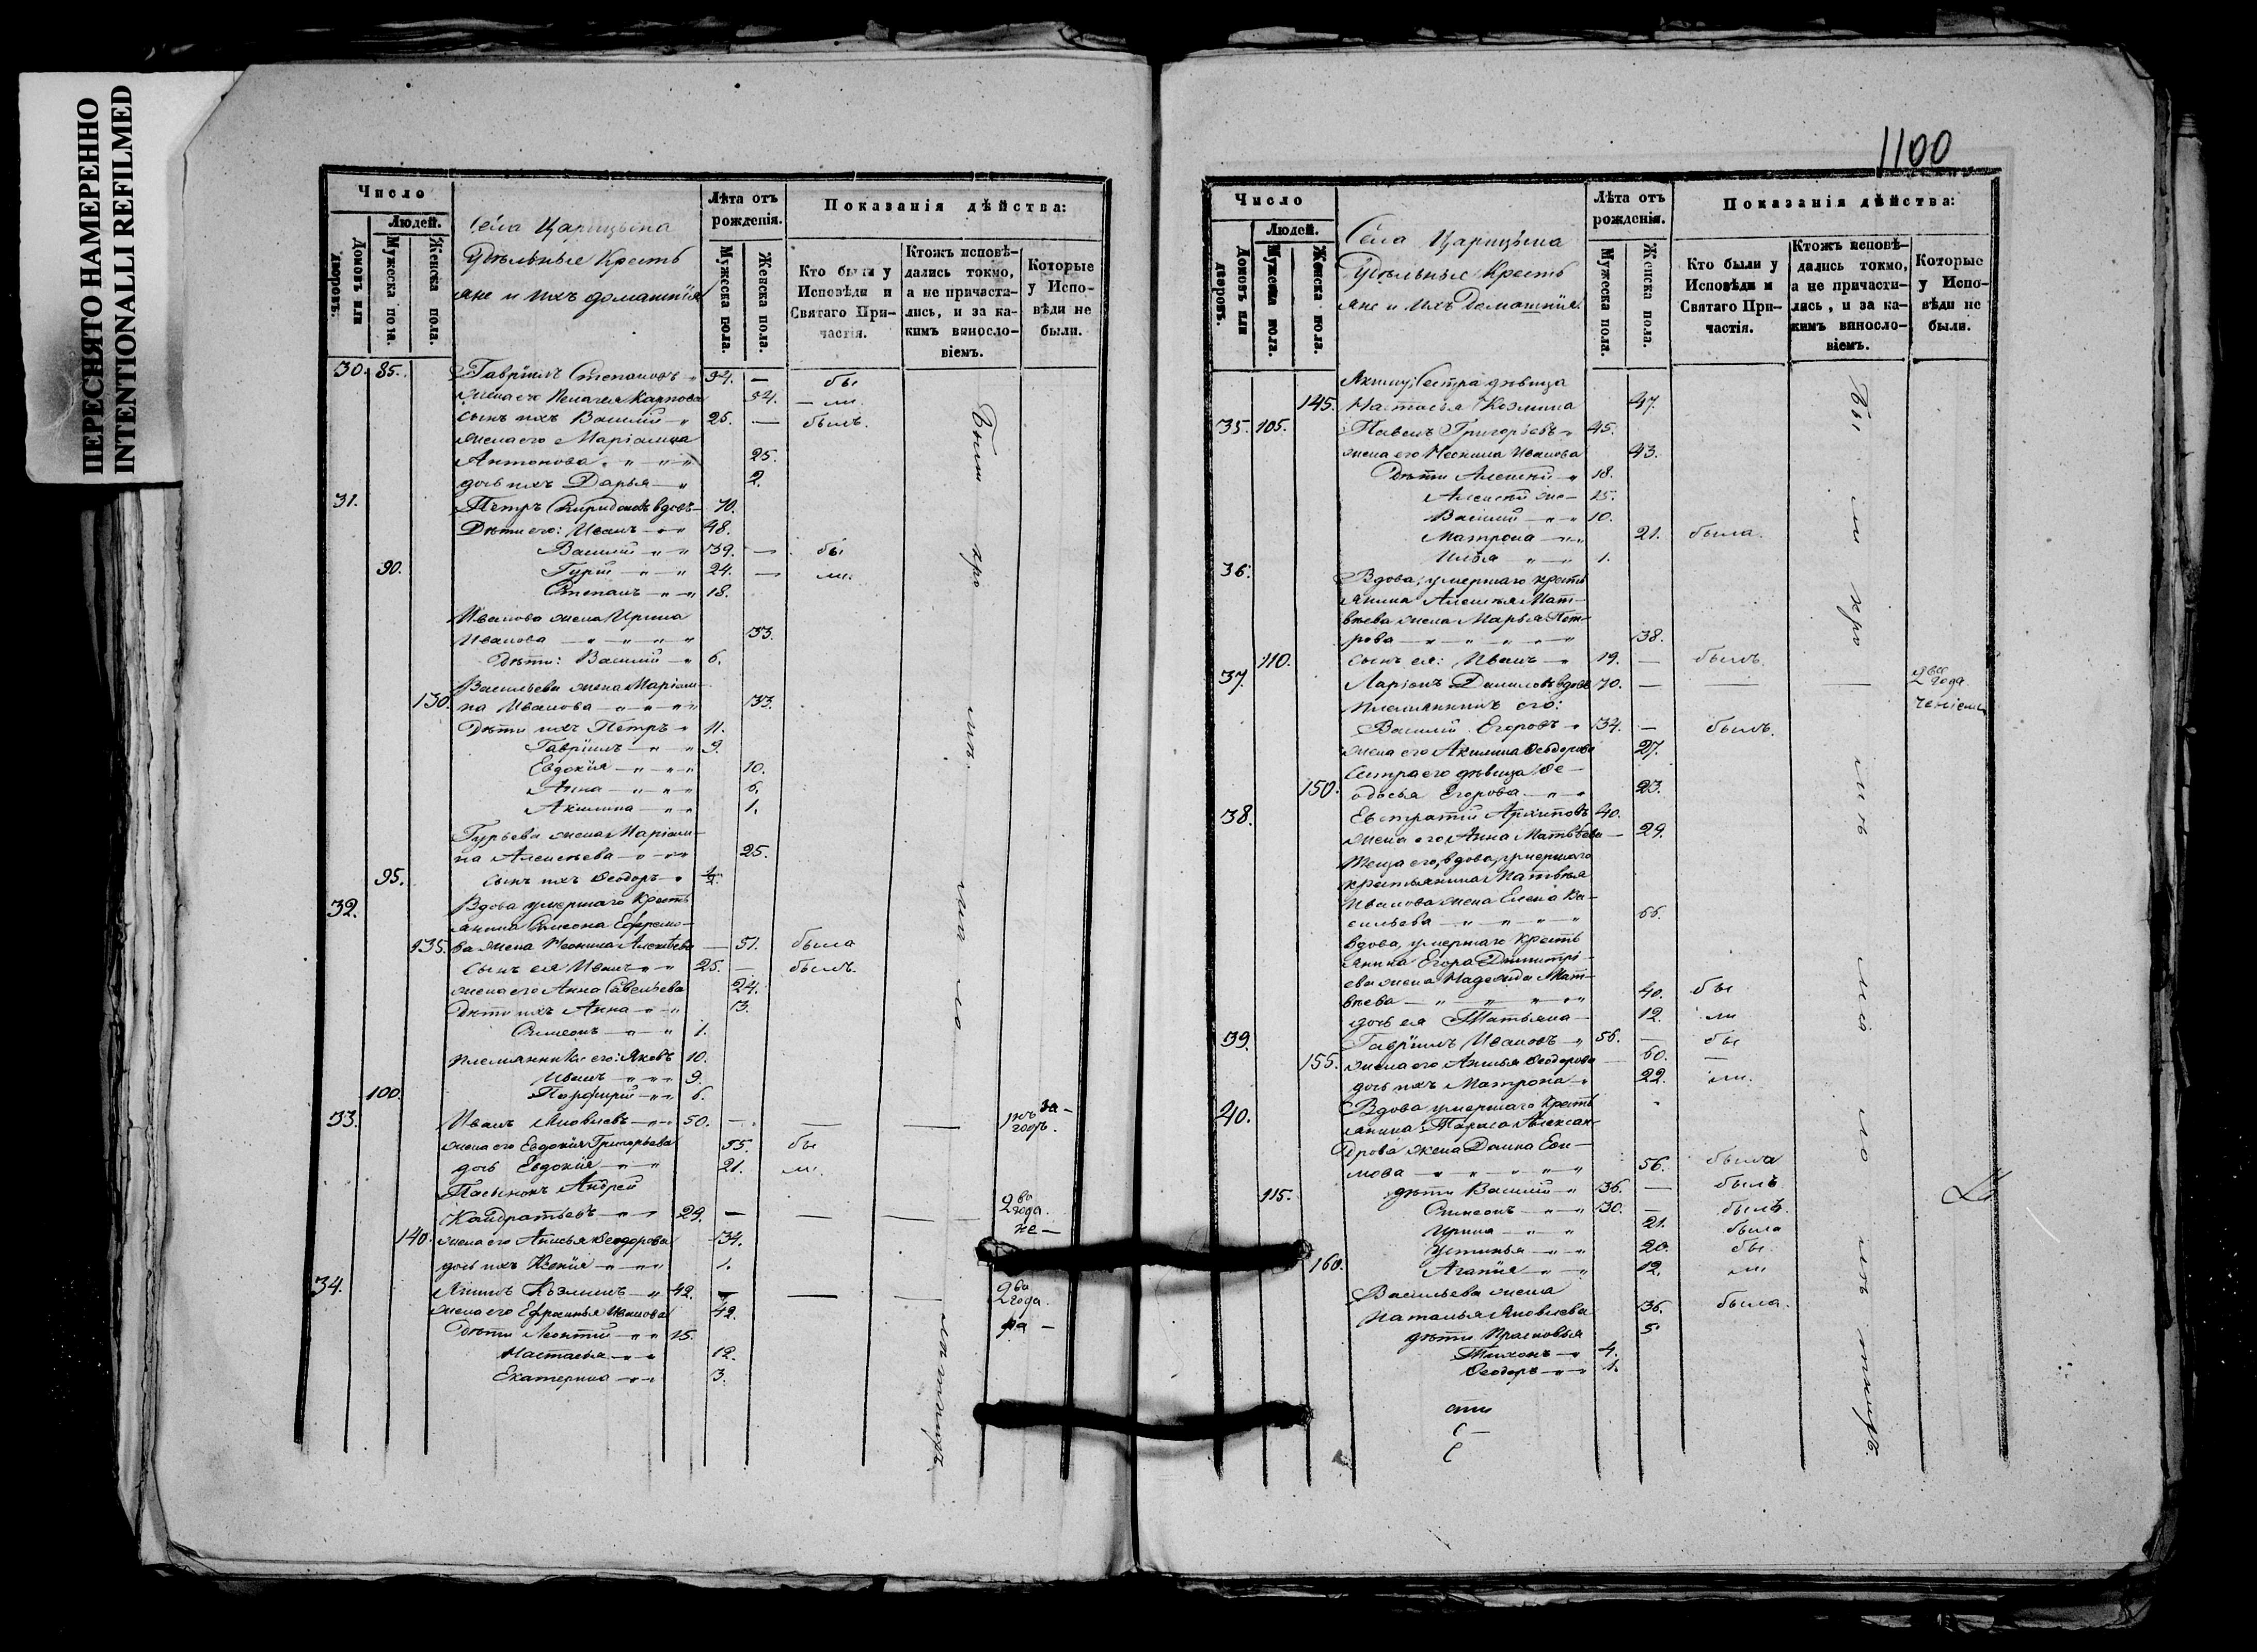 ПЕРЕСНЯТО НАМЕРЕННО
INTENTIONALLI REFILMED
Число
Людей.
Домовъ или дворовъ.
Мужеска пола.
Женска пола.
Села Царицына
Удѣльные Кресть
яне и ихъ домашнія
Лѣта отъ
рожденія.
Мужеска пола.
Женска пола.
Показанія дѣйства:
Кто были у
Исповѣди и
Святаго При-
частія.
Ктожъ исповѣ-
дались токмо,
а не причасти-
лись, и за ка-
кимъ винносло-
віемъ.
Которые
у Испо-
вѣди не
были.
30. 85. Гавріилъ Степановъ 54. — бы
жена его Пелагея Карпова 54. — ли.
сынъ ихъ Василій 25. — былъ.
жена его Маріамна
Антонова 25.
дочь ихъ Дарья 2.
31. Петръ Спиридоновъ вдовъ 70.
Дѣти его: Иванъ 48.
Василій 39. — бы
90. Гурій 24. — ли.
Степанъ 18.
Иванова жена Ирина
Иванова 53.
Дѣти: Василій 6.
Васильева жена Маріам-
130. на Иванова 33.
Дѣти ихъ Петръ 11.
Гавріилъ 9.
Евдокія 10.
Анна 6.
Акилина 1.
Гурьева жена Маріам-
на Алексѣева 25.
95. сынъ ихъ Ѳеодоръ ½.
32. Вдова умершаго кресть
янина Симеона Ефремо-
135. ва жена Неонила Алексѣева — 51. была
сынъ ея Иванъ 25. — былъ.
жена его Анна Савельева 24.
Дѣти ихъ Анна 3.
Симеонъ 1.
племянники его: Яковъ 10.
Иванъ 9.
100. Порфирій 6.
33. Иванъ 50. — — — 1нъ за-
годъ.
жена его Евдокія Григорьева 55. бы
дочь Евдокія 21. ли.
Пасынокъ Андрей
Кандратьевъ 29. — — — 2ва
года.
не —
140. жена его Анисья Ѳеодорова 34.
дочь ихъ Ксенія 1.
34. Якимъ Козминъ 42. — — — 2ва
года.
ра —
жена его Ефросинья Иванова 42.
Дѣти Леонтій 15.
Настасья 12.
Екатерина 3.
1100
Число
Людей.
Домовъ или дворовъ.
Мужеска пола.
Женска пола.
Села Царицына
Удѣльные Кресть
яне и ихъ Домашнія
Лѣта отъ
рожденія.
Мужеска пола.
Женска пола.
Показанія дѣйства:
Кто были у
Исповѣди и
Святаго При-
частія.
Ктожъ исповѣ-
дались токмо,
а не причасти-
лись, и за ка-
кимъ винносло-
віемъ.
Которые
у Испо-
вѣди не
были.
Якиму; Сестра дѣвица
145. Настасья Козмина 47.
35. 105. Павелъ Григорьевъ 45.
жена его Неонила Иванова 43.
Дѣти Алексѣй 18.
Алексѣй же 15.
Василій 10.
Матрона 21. была.
Илья 1.
36. Вдова, умершаго кресть
янина Алексѣя Мат-
вѣева жена Марья Пет-
рова 38.
110. сынъ ея: Иванъ 19. — былъ.
37. Ларіонъ Даниловъ вдовъ 70. — — — 2ва
года
племянникъ его:
Василій Егоровъ 34. — былъ.
жена его Акилина Ѳеодорова 27.
Сестра его дѣвица Ѳе-
150. одосья Егорова 23.
38. Евстратій Архиповъ 40.
жена его Анна Матвѣева 29.
Теща его, вдова, умершаго
крестьянина Матвѣя
Иванова жена Елена Ва-
сильева 66.
вдова, умершаго кресть
янина Егора Димитрі-
ева жена Надежда Мат-
вѣева 40. бы
дочь ея Татьяна 12. ли
39. Гавріилъ Ивановъ 56. — бы
155. жена его Анисья Ѳеодорова 60. —
дочь ихъ Матрона 22. ли.
40. Вдова умершаго кресть
янина Тараса Алексан-
дрова жена Домна Ефи-
мова 56. была
115. дѣти Василій 36. — былъ
Симеонъ 30. — былъ.
Ирина 21. была
Устинья 20. бы
160. Агапія 12. ли
Васильева жена
Наталья Яковлева 36. была.
дѣти Прасковья 5
Тихонъ 4.
Ѳеодоръ 1.